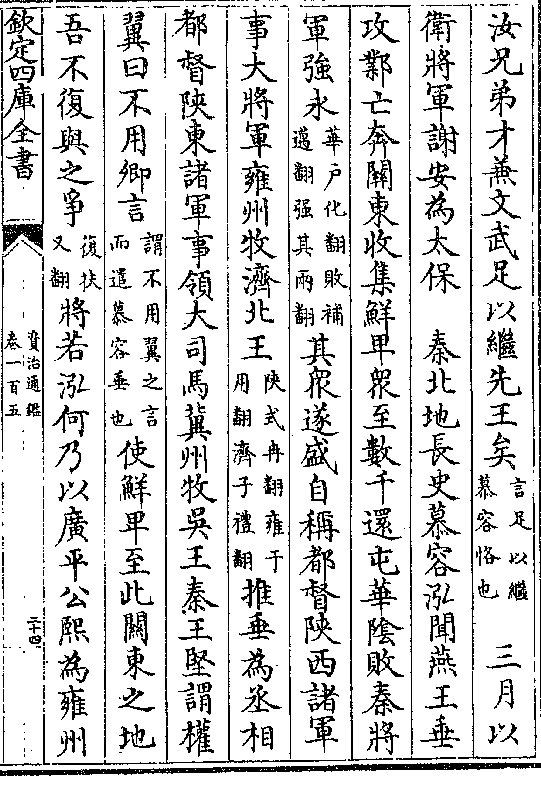 汝兄弟才兼文武足以繼先王矣言足以繼慕容恪也 三月以
衛將軍謝安為太保 秦北地長史慕容泓聞燕王垂
攻鄴亡奔關東收集鮮卑衆至數千還屯華陰敗秦將
軍強永華户化翻敗補邁翻强其兩翻其衆遂盛自稱都督陝西諸軍
事大將軍雍州牧濟北王陜式冉翻雍于用翻濟子禮翻推垂為丞相
都督陜東諸軍事領大司馬冀州牧吳王秦王堅謂權
翼曰不用卿言謂不用翼之言而遣慕容垂也使鮮卑至此關東之地
吾不復與之爭復扶又翻將若泓何乃以廣平公熙為雍州
欽定四庫全書
資治通鑑
卷一百五
二十四